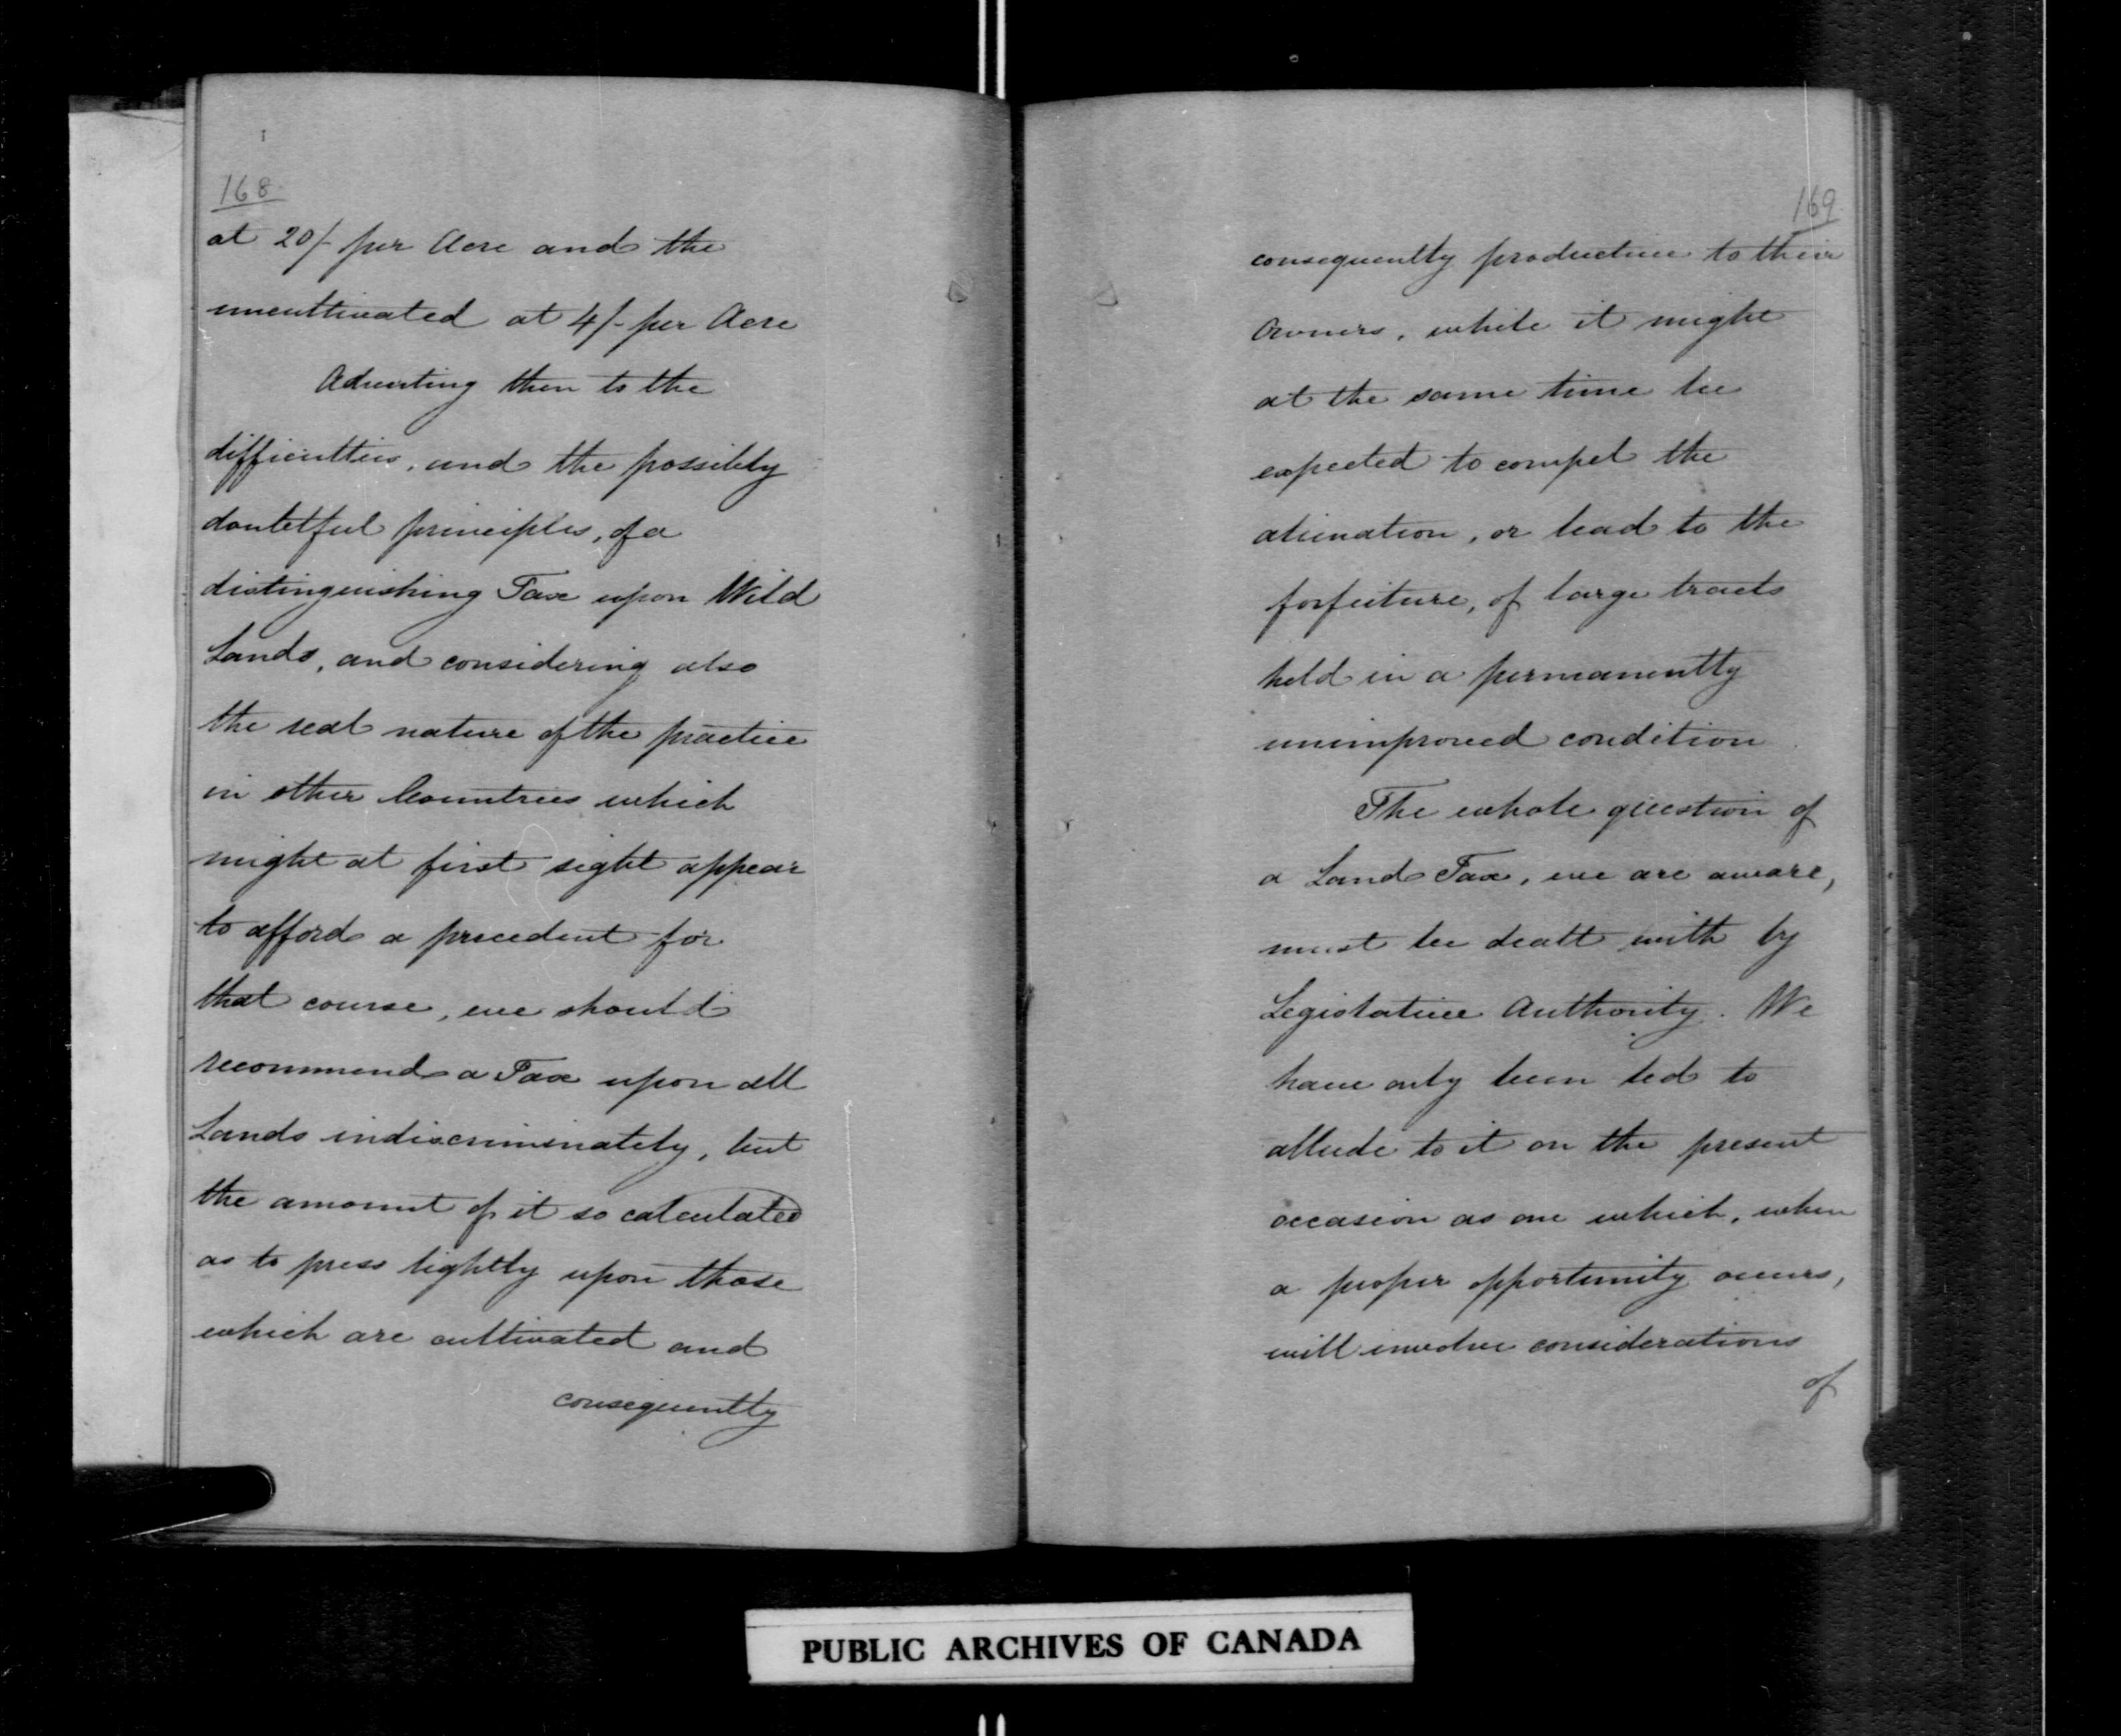 168
at 20/- per Acre and the
uncultivated at 4/- per Acre
Adverting then to the
difficulties, and the possibly
doubtful principles, of a
distinguishing Tax upon Wild
Lands, and considering also
the real nature of the practice
in other Countries which
might at first sight appear
to afford a precedent for
that course, we should
recommend a Tax upon all
Lands indiscriminately, but
the amount of it so calculated
as to press lightly upon those
which are cultivated and
consequently
169
consequently productive to their
Owners, while it might
at the same time be
expected to compel the
alienation, or lead to the
forfeiture, of large tracts
held in a permanently
unimproved condition
The whole question of
a Land Tax, we are aware,
must be dealt with by
Legislative Authority. We
have only been led to
allude to it on the present
occasion as one which, when
a proper opportunity occurs,
will involve considerations
of
PUBLIC ARCHIVES OF CANADA